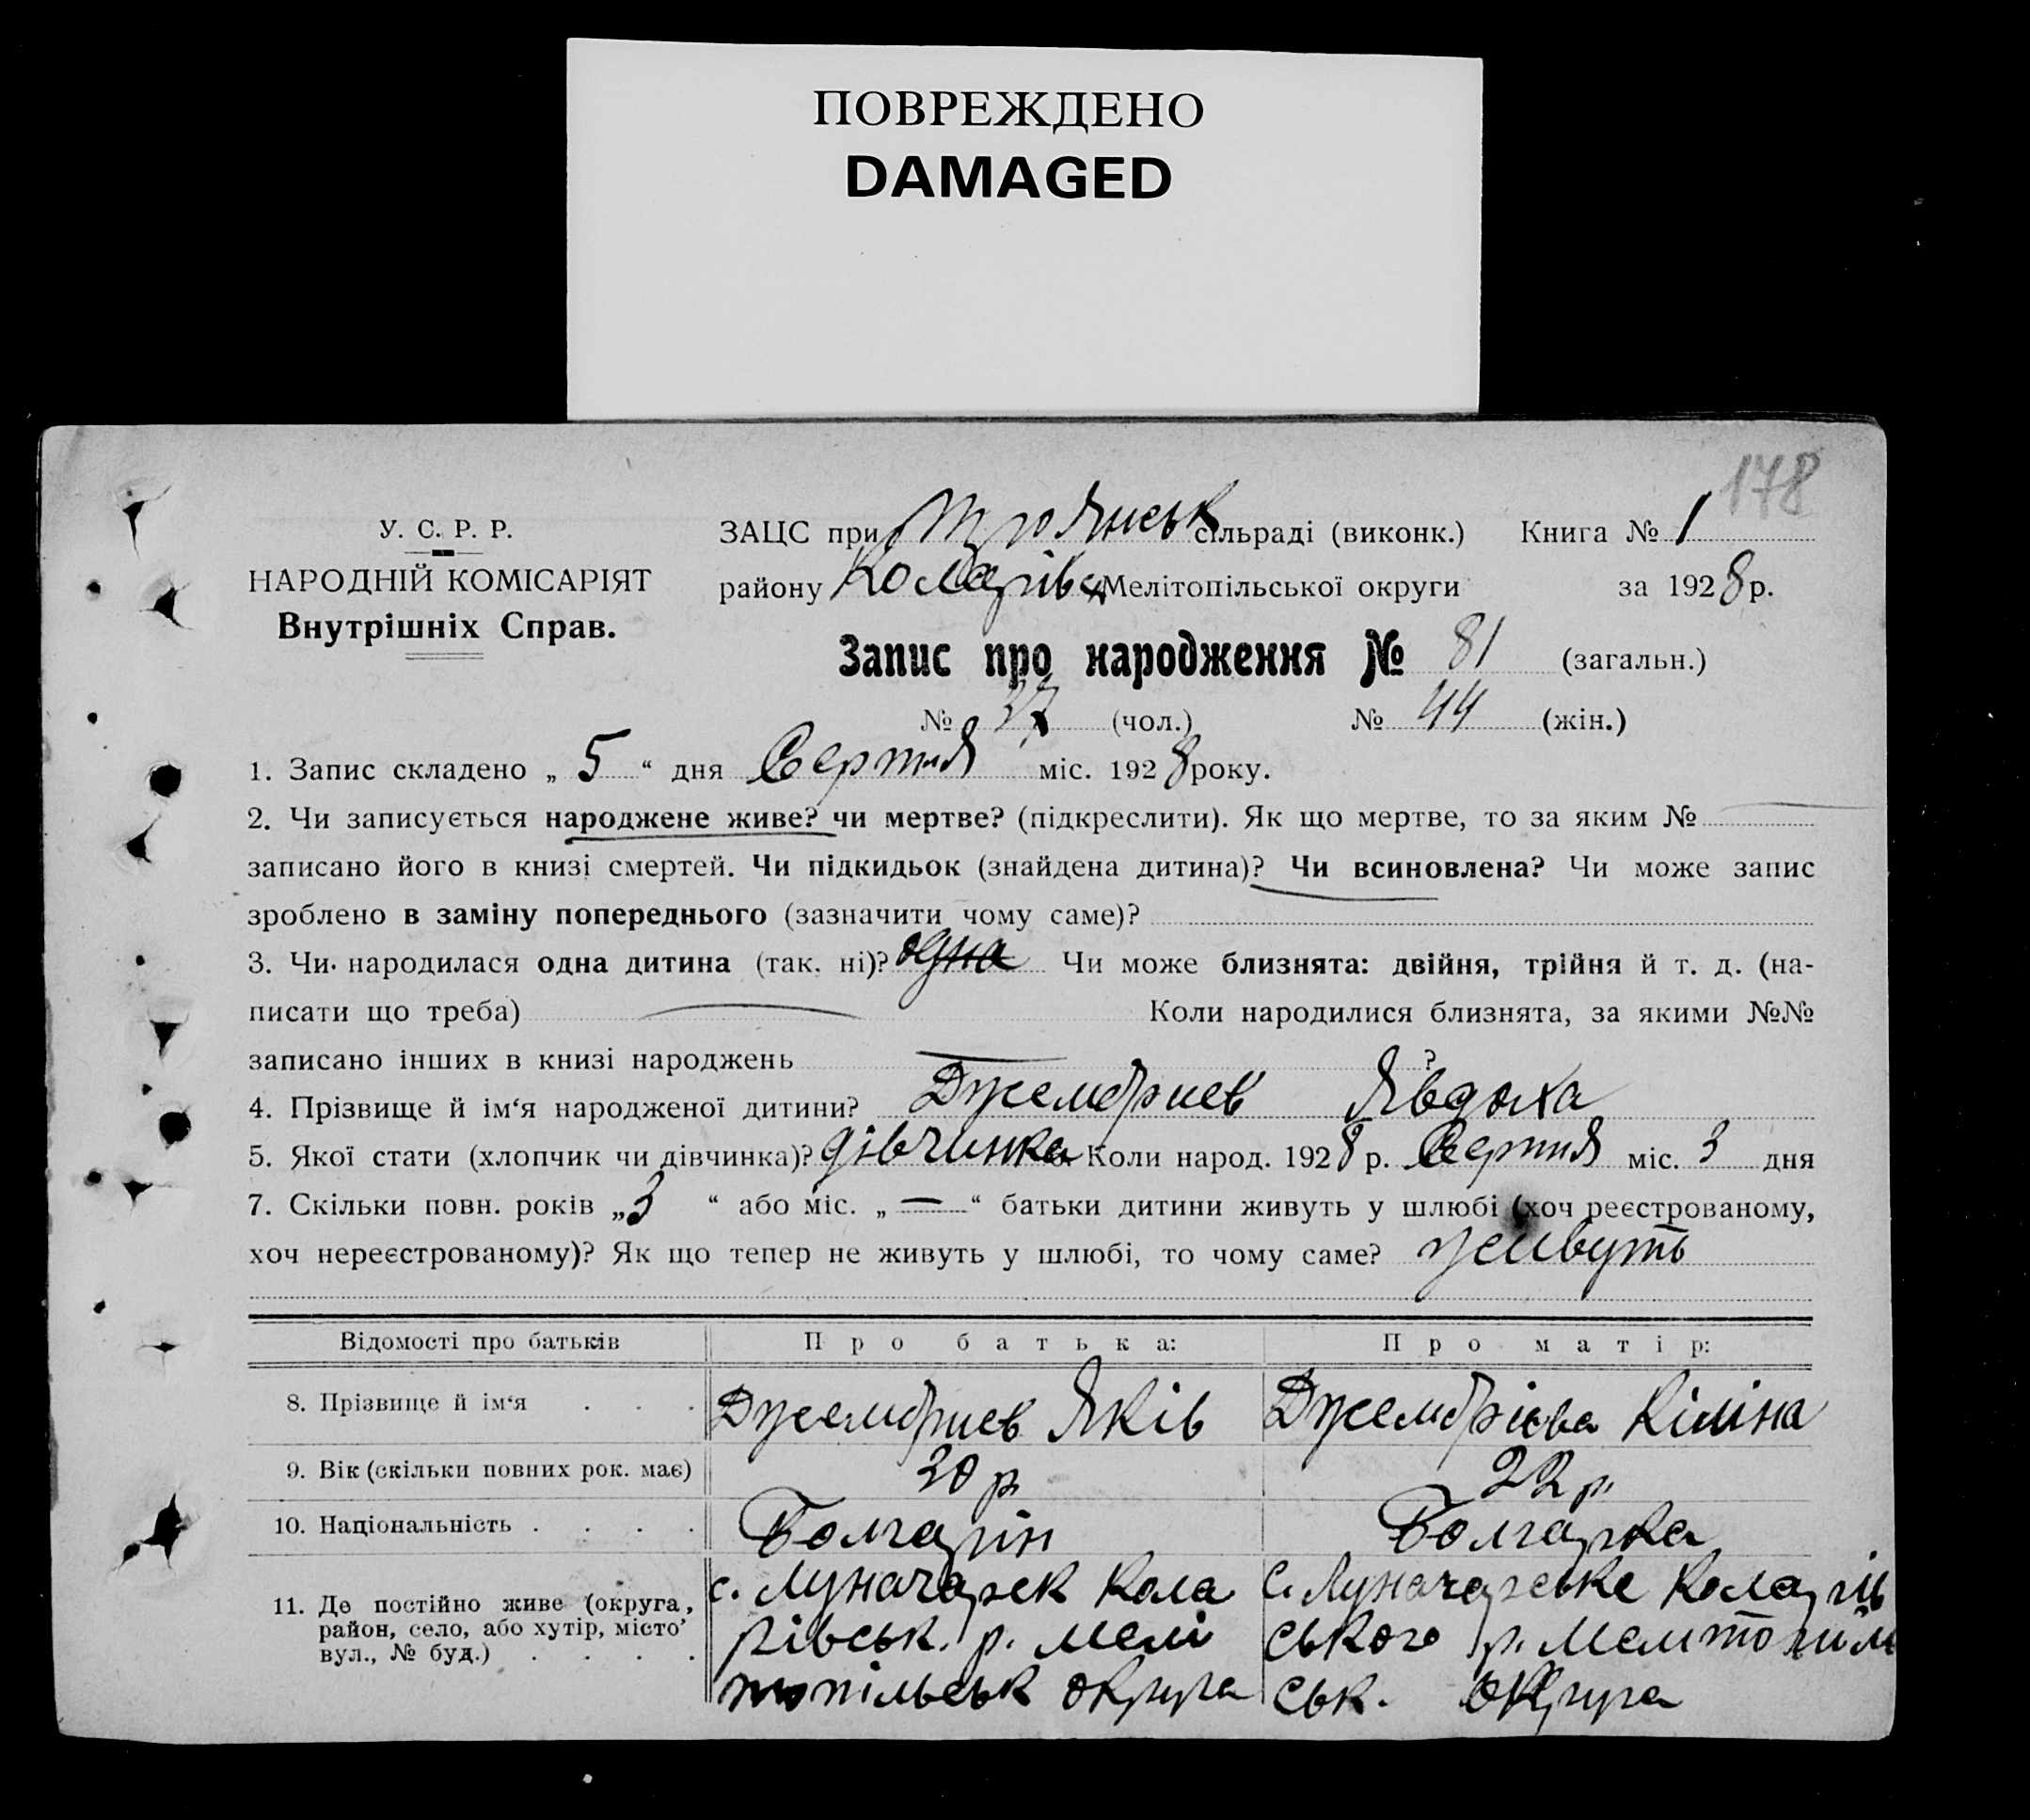 ПОВРЕЖДЕНО
DAMAGED
178
У. С. Р. Р.
НАРОДНІЙ КОМІСАРІЯТ
Внутрішніх Справ.
ЗАЦС при Троянськ сільраді (виконк.) Книга № 1
району Коларівс Мелітопільської округи за 1928 р.
Запис про народження № 81 (загальн.)
№ 37 (чол.) № 44 (жін.)
1. Запис складено „ 5 “ дня Серпня міс. 1928 року.
2. Чи записується народжене живе? чи мертве? (підкреслити). Як що мертве, то за яким №
записано його в книзі смертей. Чи підкидьок (знайдена дитина)? Чи всиновлена? Чи може запис
зроблено в заміну попереднього (зазначити чому саме)?
3. Чи народилася одна дитина (так, ні)? одна Чи може близнята: двійня, трійня й т. д. (на-
писати що треба) Коли народилися близнята, за якими №№
записано інших в книзі народжень ?
4. Прізвище й ім‘я народженої дитини? Джембриев Явдоха
5. Якої стати (хлопчик чи дівчинка)? дівчинка Коли народ. 1928 р. Серпня міс. 3 дня
7. Скільки повн. років „3 “ або міс. „ — “ батьки дитини живуть у шлюбі (хоч реєстрованому,
хоч нереєстрованому)? Як що тепер не живуть у шлюбі, то чому саме? живуть
Відомості про батьків Про батька: Про матір:
8. Прізвище й ім‘я . . . Джембриев Яків Джембрієва Кіліна
9. Вік (скільки повних рок. має) 20 р 22 р.
10. Національність . . . . Болгарін Болгарка
11. Де постійно живе (округа, район, село, або хутір, місто’ вул., № буд.) . . . .
с. Луначарск Кола
рівськ. р. Мелі
топільськ округа
с. Луначарське Коларів
ського р. Мелітопіль
ськ. округа